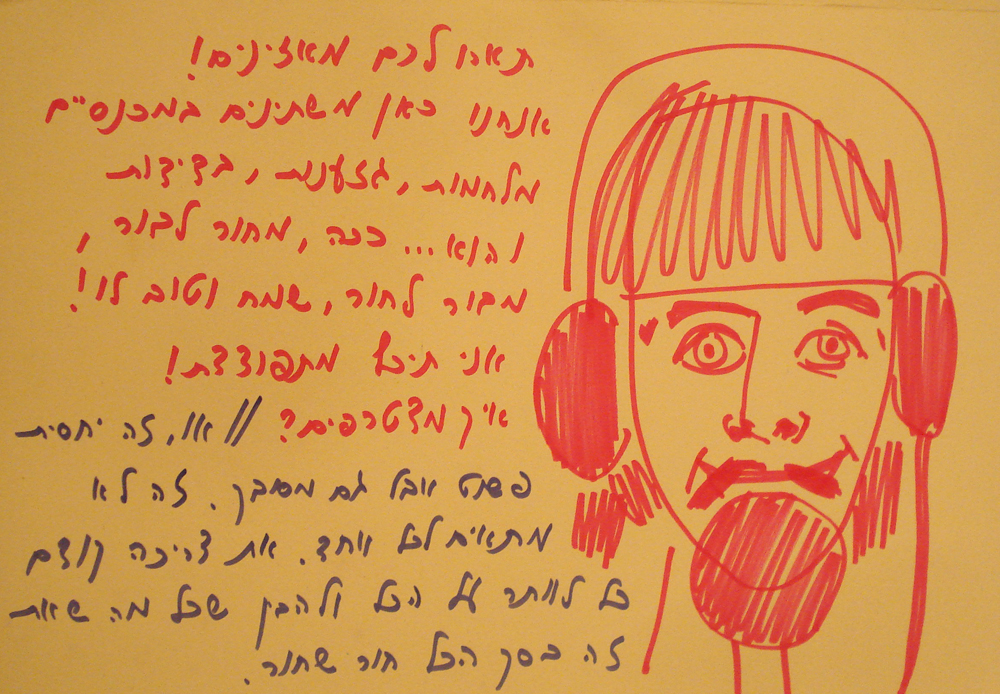 תארו לכם מאזינים!
אנחנו כאן משתינים במכנסיים
מלחמות, גזענות, בדידות
והוא... ככה, מחור לבור,
מבור לחור, שמח וטוב לו!
אני תיכף מתפוצצת!
איך מצטרפים? // או, זה יחסית
פשוט אבל גם מסובך. זה לא
מתאים לכל אחד. את צריכה קודם
כל לוותר על הכל ולהבין שכל מה שאת
זה בסך הכל חור שחור.